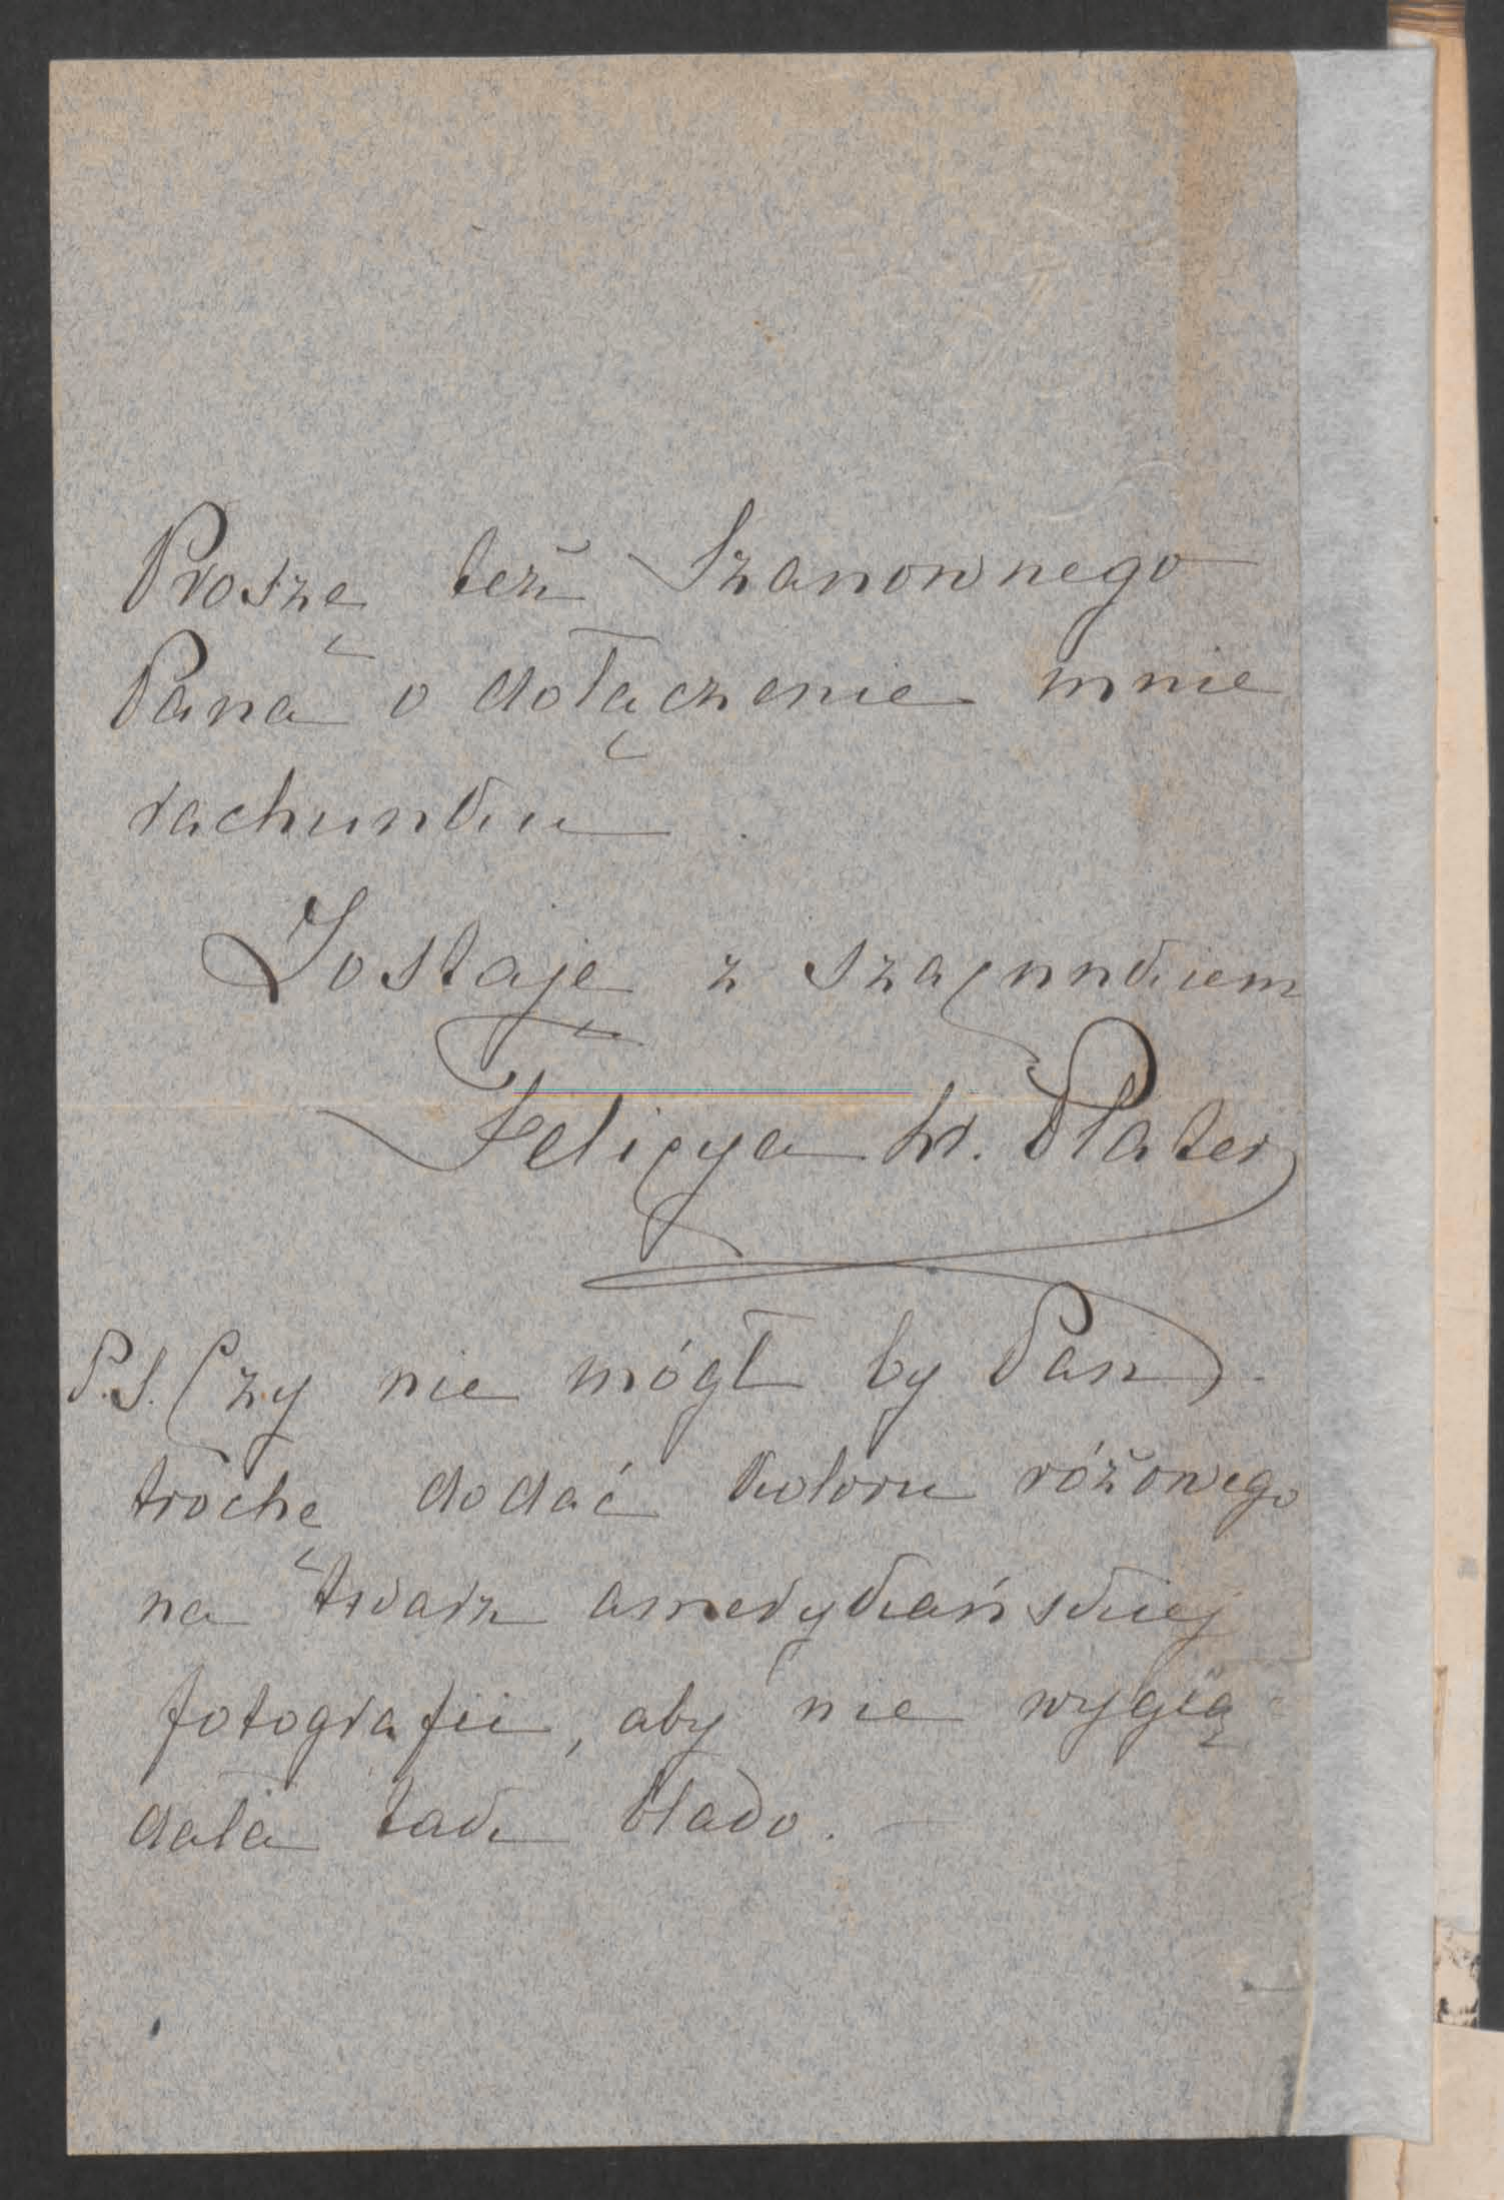 Proszę też Szanownego
Pana o dołączenie mnie
rachunku.
Zostaję z szacunkiem
Felicya hr. Plater
P.S. Czy nie mógł by Pan
trochę dodać koloru różowego
na twarz amerykańskiej
fotografii, aby nie wyglą
dała tak blado.